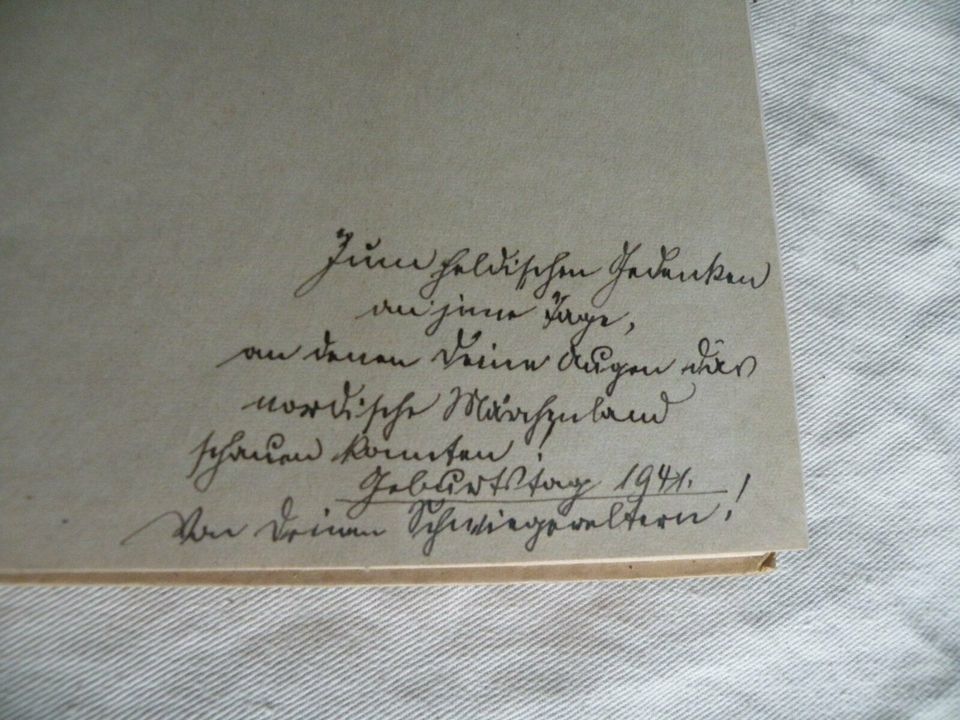 Zum heldischen Gedenken
an jene Tage,
an denen Deine Augen das
nordische Märchenland
schauen konnten!
Geburtstag 1941.
Von Deinen Schwiegereltern!